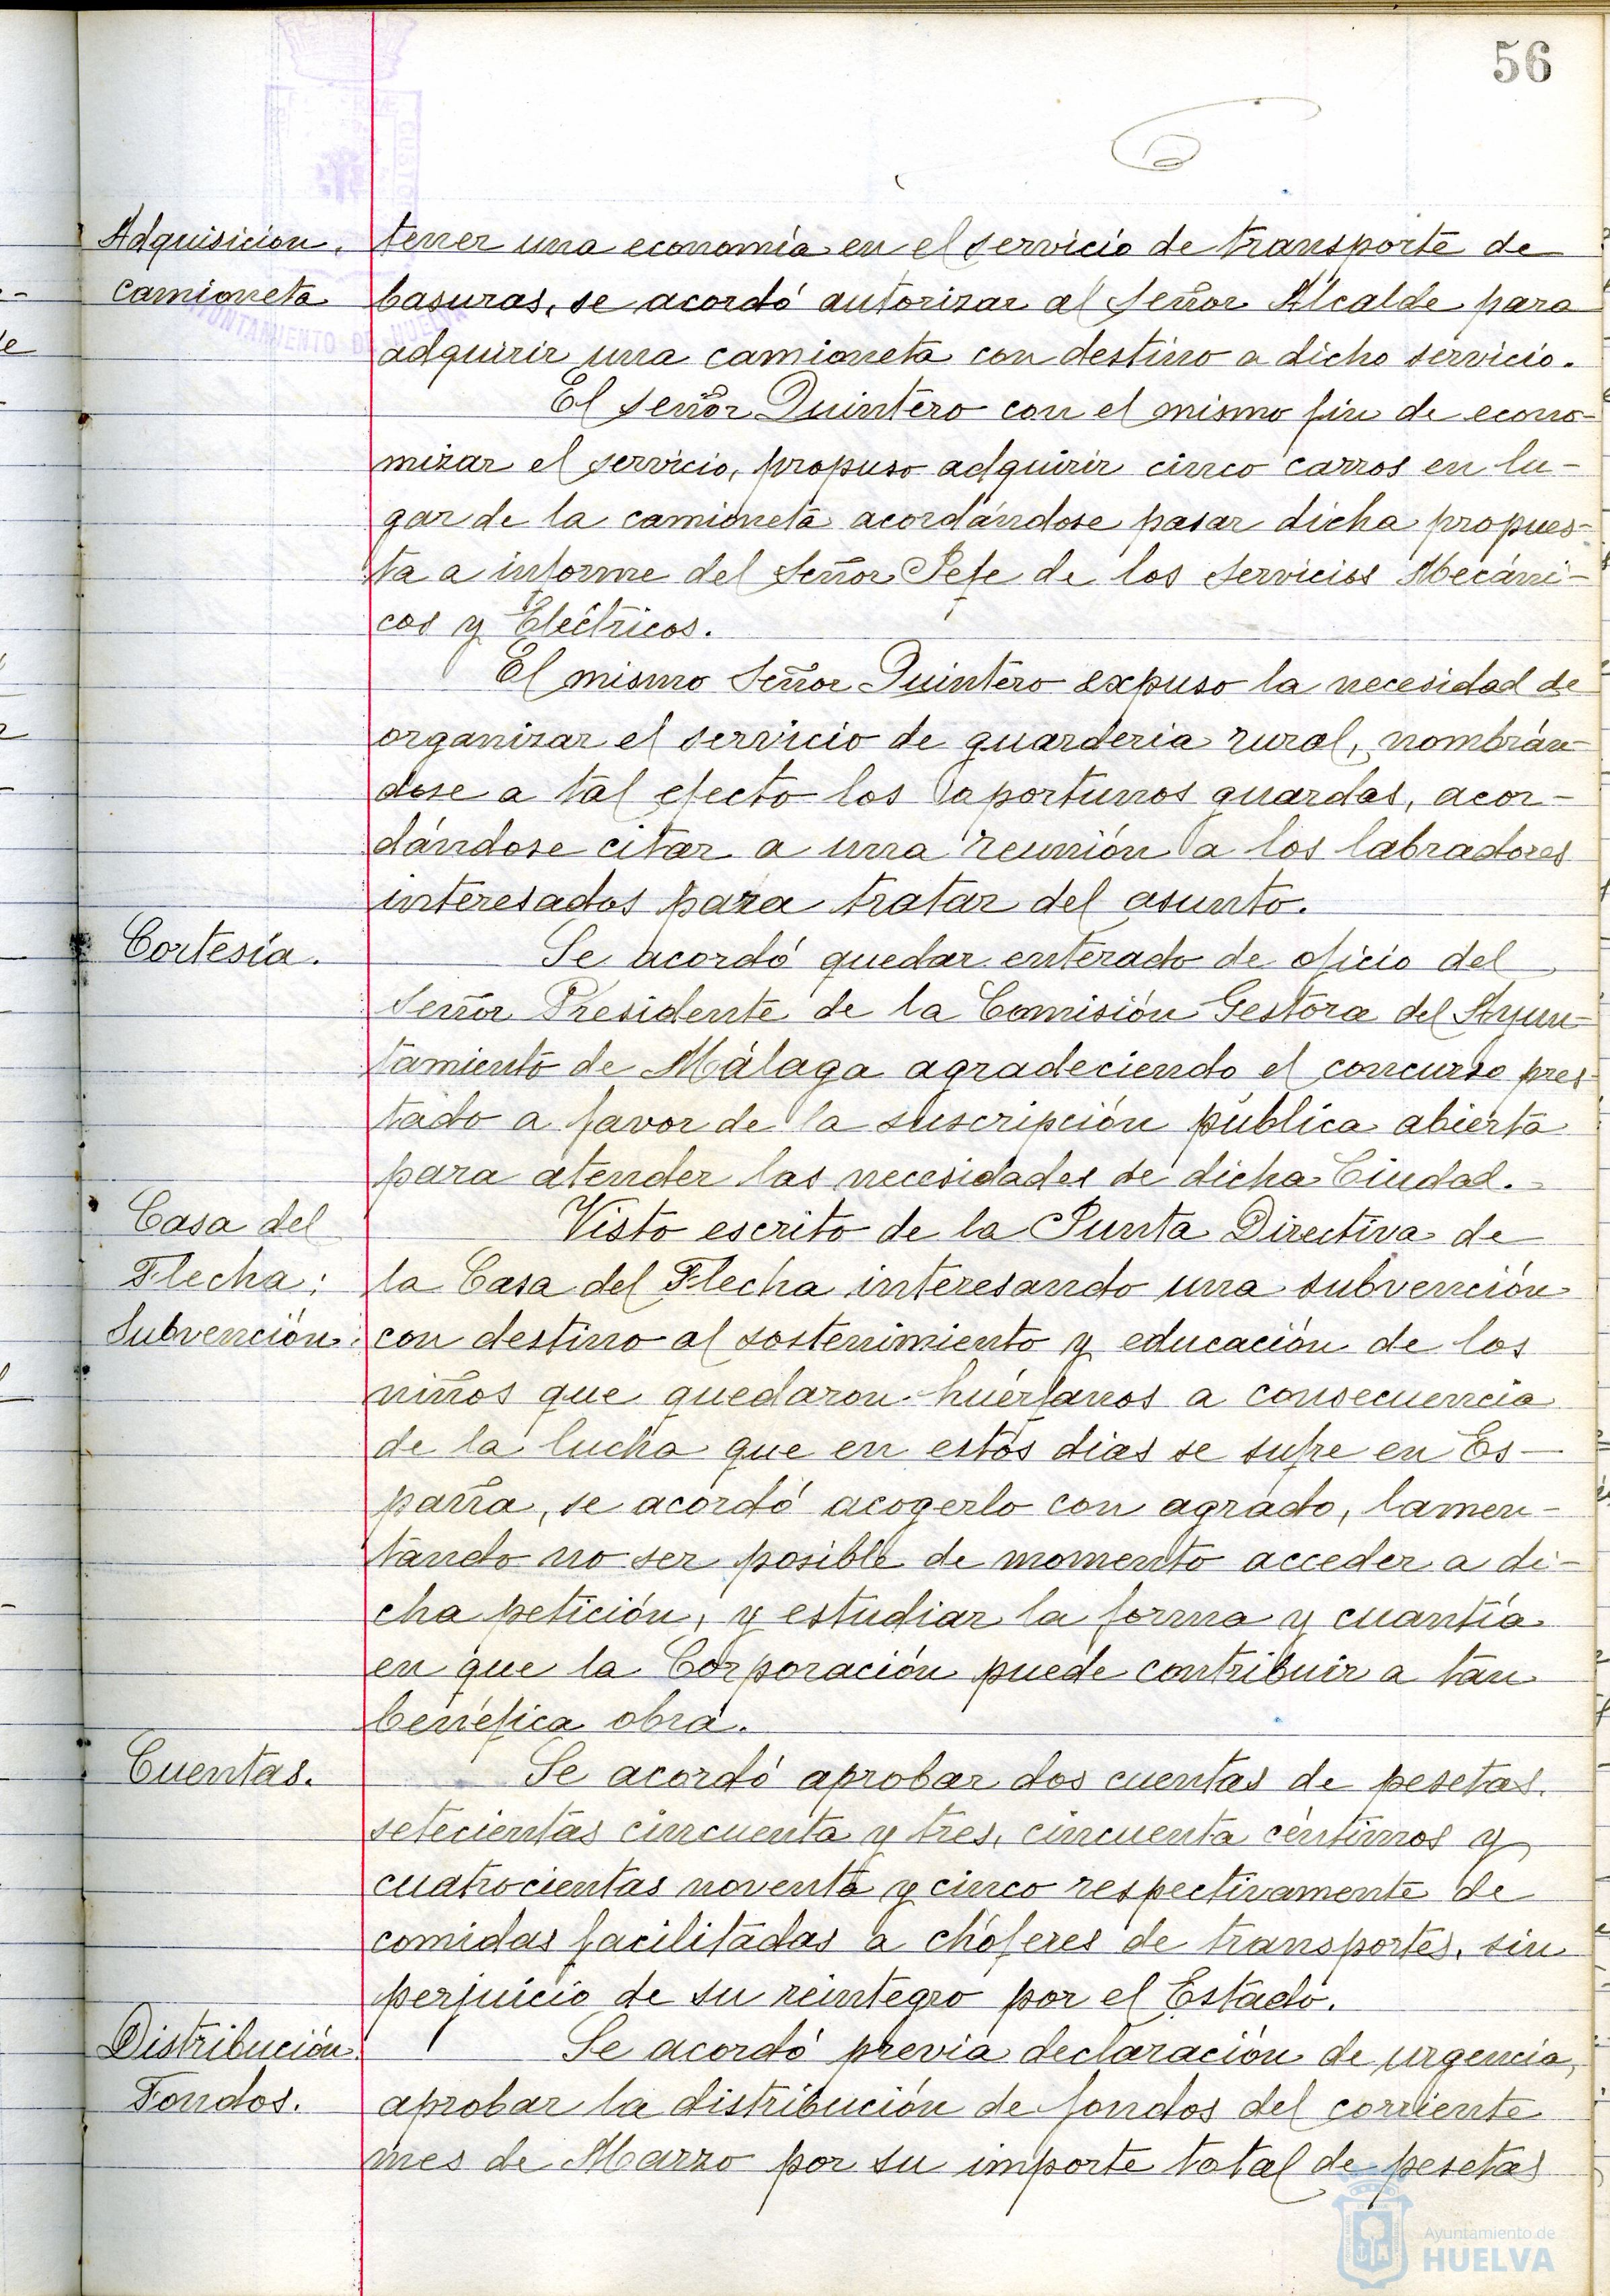 56
Adquisicion. tener una economía en el servicio de transporte de
camioneta basuras, se acordó autorizar al Señor Alcalde para
adquirir una camioneta con destino a dicho servicio.
El Señor Quintero con el mismo fin de econo-
mizar el servicio, propuso adquirir cinco carros en lu-
gar de la camioneta acordándose pasar dicha propues-
ta a informe del Señor Jefe de los Servicios Mecáni-
cos y Eléctricos.
El mismo Señor Quintero expuso la necesidad de
organizar el servicio de guarderia rural, nombrán-
dose a tal efecto los oportunos guardas, acor-
dándose citar a una reunión a los labradores
interesados para tratar del asunto.
Cortesía. Se acordó quedar enterado de oficio del
Señor Presidente de la Comisión Gestora del Ayun-
tamiento de Málaga agradeciendo el concurso pres-
tado a favor de la suscripción pública abierta
para atender las necesidades de dicha Ciudad.
Casa del Visto escrito de la Junta Directiva de
Flecha: la Casa del Flecha interesando una subvención
Subvención. con destino al sostenimiento y educación de los
niños que quedaron huérfanos a consecuencia
de la lucha que en estos dias se sufre en Es-
paña, se acordó acogerlo con agrado, lamen-
tando no ser posible de momento acceder a di-
cha petición, y estudiar la forma y cuantía
en que la Corporación puede contribuir a tan
benéfica obra.
Cuentas. Se acordó aprobar dos cuentas de pesetas
setecientas cincuenta y tres, cincuenta céntimos y
cuatrocientas noventa y cinco respectivamente de
comidas facilitadas a chóferes de transportes, sin
perjuicio de su reintegro por el Estado.
Distribución Se acordó previa declaración de urgencia,
Fondos. aprobar la distribución de fondos del corriente
mes de Marzo por su importe total de pesetas
AYUNTAMIENTO DE HUELVA
Ayuntamiento de
HUELVA